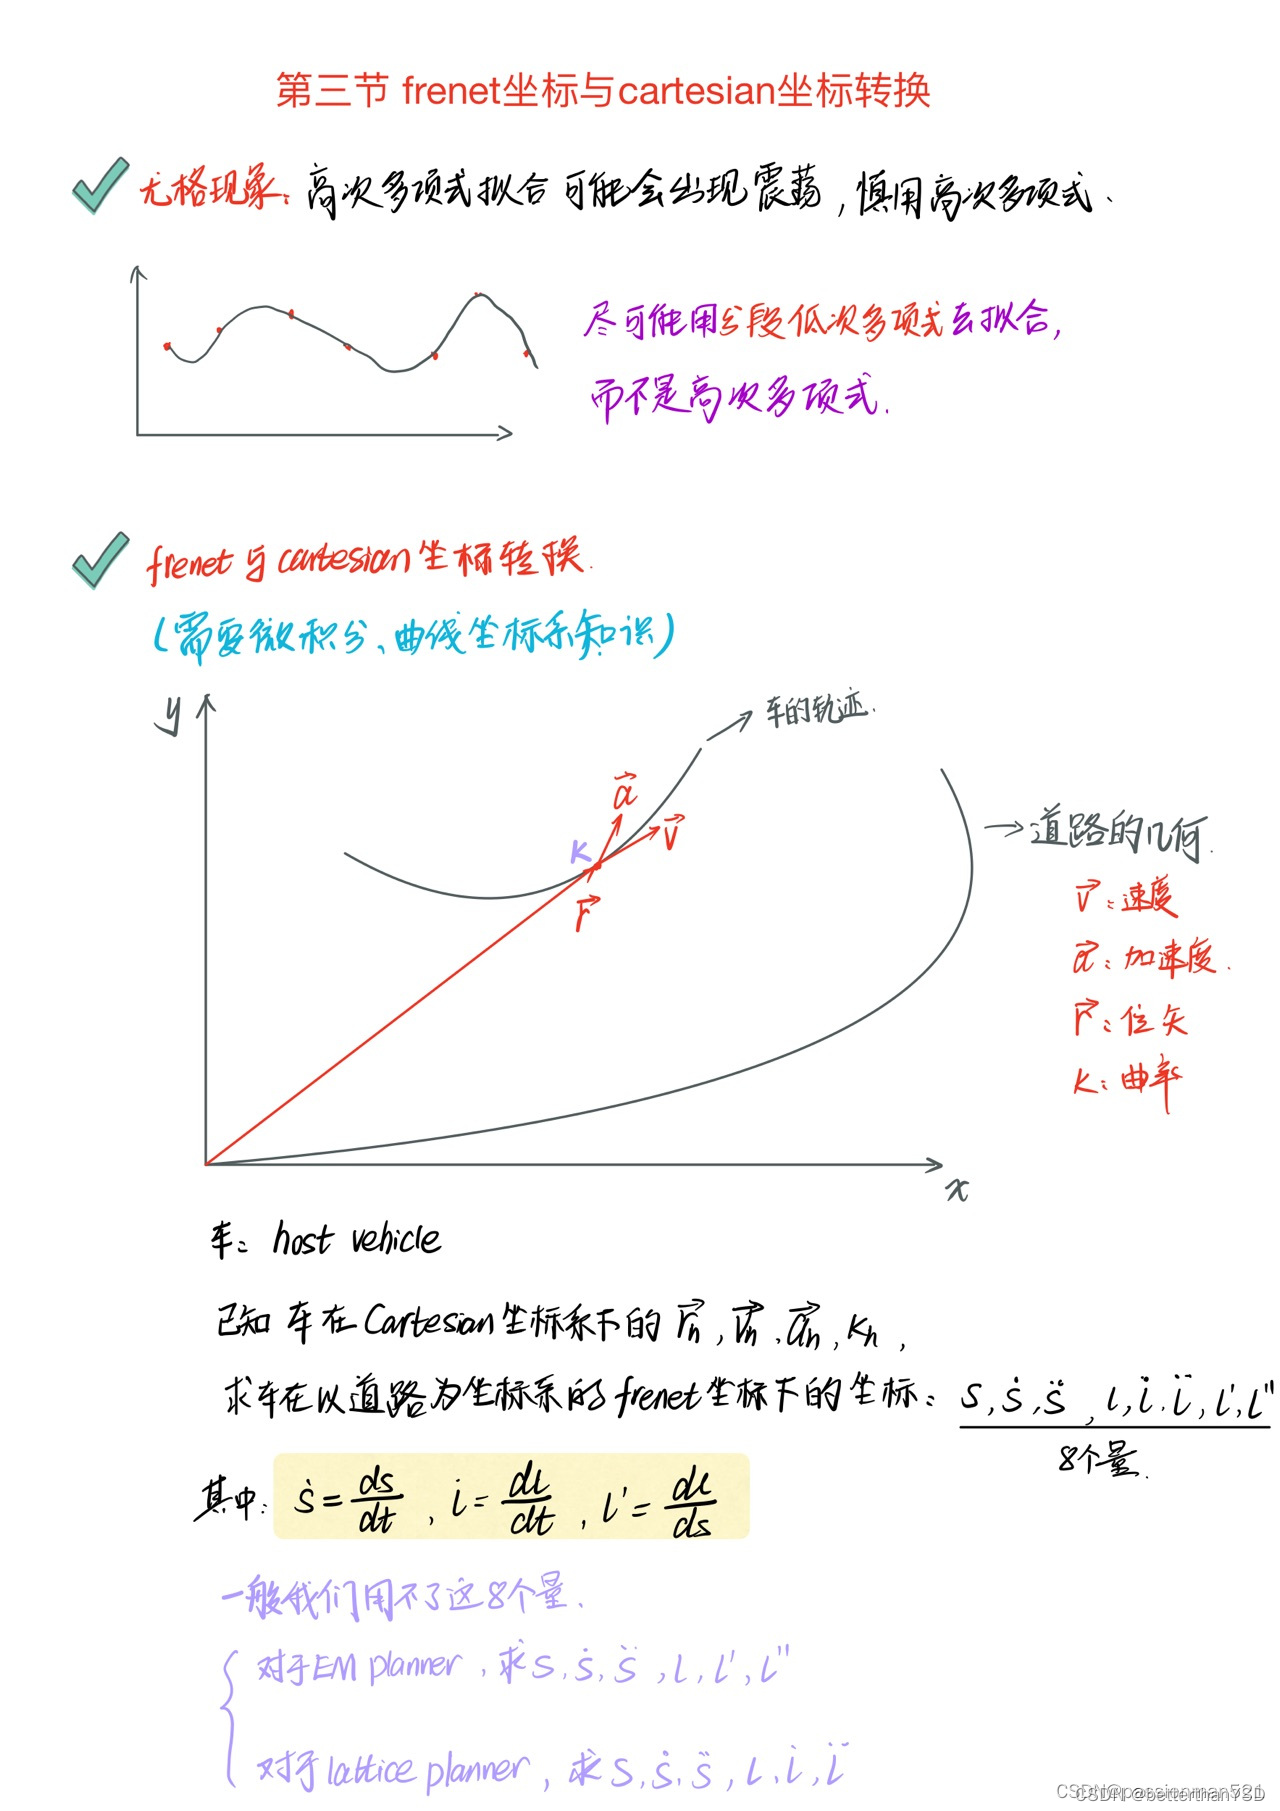 第三节 frenet坐标与cartesian坐标转换
尤格现象：高次多项式拟合可能会出现震荡，慎用高次多项式.
尽可能用分段低次多项式去拟合，
而不是高次多项式.
frenet与cartesian坐标转换.
（需要微积分、曲线坐标系知识）
y
车的轨迹.
a⃗
v⃗
K
r⃗
道路的几何.
v⃗：速度
a⃗：加速度.
r⃗：位矢
K：曲率
x
车：host vehicle
已知 车在Cartesian坐标系下的 r⃗h, v⃗h, a⃗h, Kh,
求车在以道路为坐标系的frenet坐标下的坐标：s, ṡ, s̈, l, l̇, l̈, l', l''
8个量.
其中：ṡ = ds/dt, l̇ = dl/dt, l' = dl/ds
一般我们用不了这8个量.
对于EM planner, 求 s, ṡ, s̈, l, l', l''
对于lattice planner, 求 s, ṡ, s̈, l, l̇, l̈
CSDN @betterthanTSD